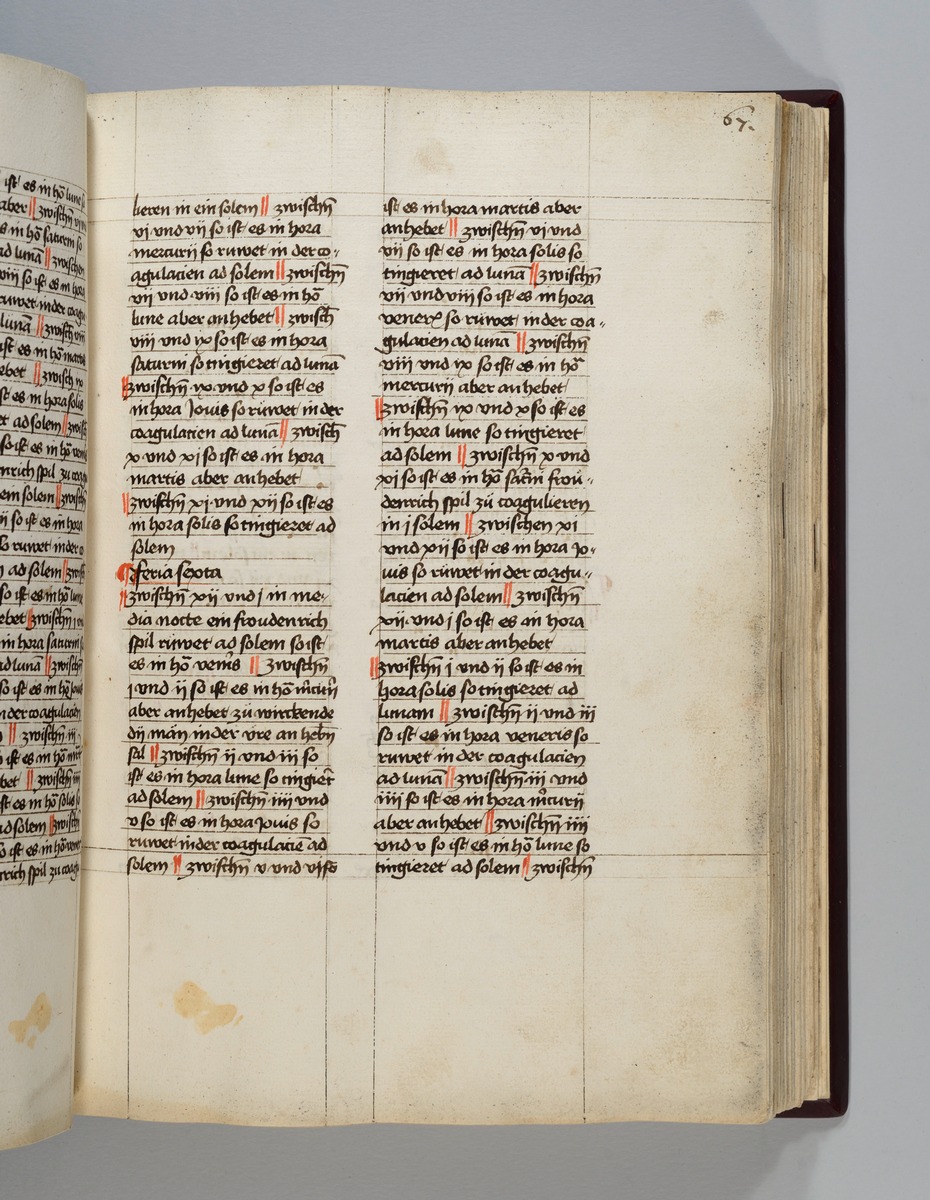 67.
lieren in ein solem || zwischn̄
vi vnd vii so ist es in hora
mercurij so ruwet in der co-
agulacien ad solem || zwischn̄
vii vnd viii so ist es in hō
lune aber anhebet || zwisch̄
viii vnd ix so ist es in hora
saturni so tingieret ad lunā
|| zwischn̄ ix vnd x so ist es
in hora Jouis so růwet in der
coagulacien ad lunā || zwisch̄
x vnd xj so ist es in hora
martis aber anhebet
|| zwischn̄ xj vnd xij so ist es
in hora solis so tingieret ad
solem
¶ feria sexta
|| zwischn̄ xij vnd j in me-
dia nocte ein froudenrich
spil růwet ad solem so ist
es in hō ven̄is || zwischn̄
j vnd ij so ist es in hō m̄curij
aber anhebet zů wirckende
dij mān in der vre an hebn̄
sal || zwischn̄ ij vnd iij so
ist es in hora lune so tingier̄t
ad solem || zwischn̄ iiij vnd
v so ist es in hora Jouis so
ruwet in der coagulaciē ad
solem || zwischn̄ v vnd vj so
ist es in hora martis aber
anhebet || zwischn̄ vi vnd
vii so ist es in hora solis so
tingieret ad lunā || zwischn̄
vii vnd viii so ist es in hora
veneris so růwet in der coa-
gulacien ad luna || zwischn̄
viii vnd ix so ist es in hō
mercurij aber anhebet
|| zwischn̄ ix vnd x so ist es
in hora lune so tingieret
ad solem || zwischn̄ x vnd
xj so ist es in hō sat̄ni frou-
denrich spil zů coagulieren
in j solem || zwischen xj
vnd xij so ist es in hora Jo-
uis so růwet in der coagu-
lacien ad solem || zwischn̄
xij vnd j so ist es in hora
martis aber anhebet
|| zwischn̄ j vnd ij so ist es in
hora solis so tingieret ad
lunam || zwischn̄ ij vnd iij
so ist es in hora veneris so
ruwet in der coagulacien
ad lunā || zwischn̄ iij vnd
iiij so ist es in hora m̄curij
aber anhebet || zwischn̄ iiij
vnd v so ist es in hō lune so
tingieret ad solem || zwischn̄